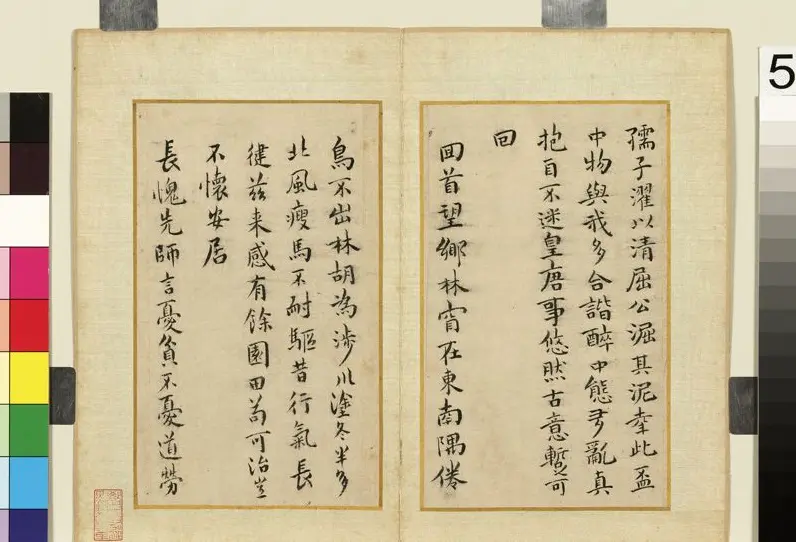 孺子濯以清屈公淈其泥奉此盃
中物與我多合諧醉中態多亂真
抱自不迷皇唐事悠然古意暫可
回
回首望鄉林宵在東南隅倦
鳥不出林胡為涉川塗冬半多
北風瘦馬不耐驅昔行氣長
徤茲来感有餘園田苟可治豈
不懷安居
長愧先師言憂貧不憂道勞
5